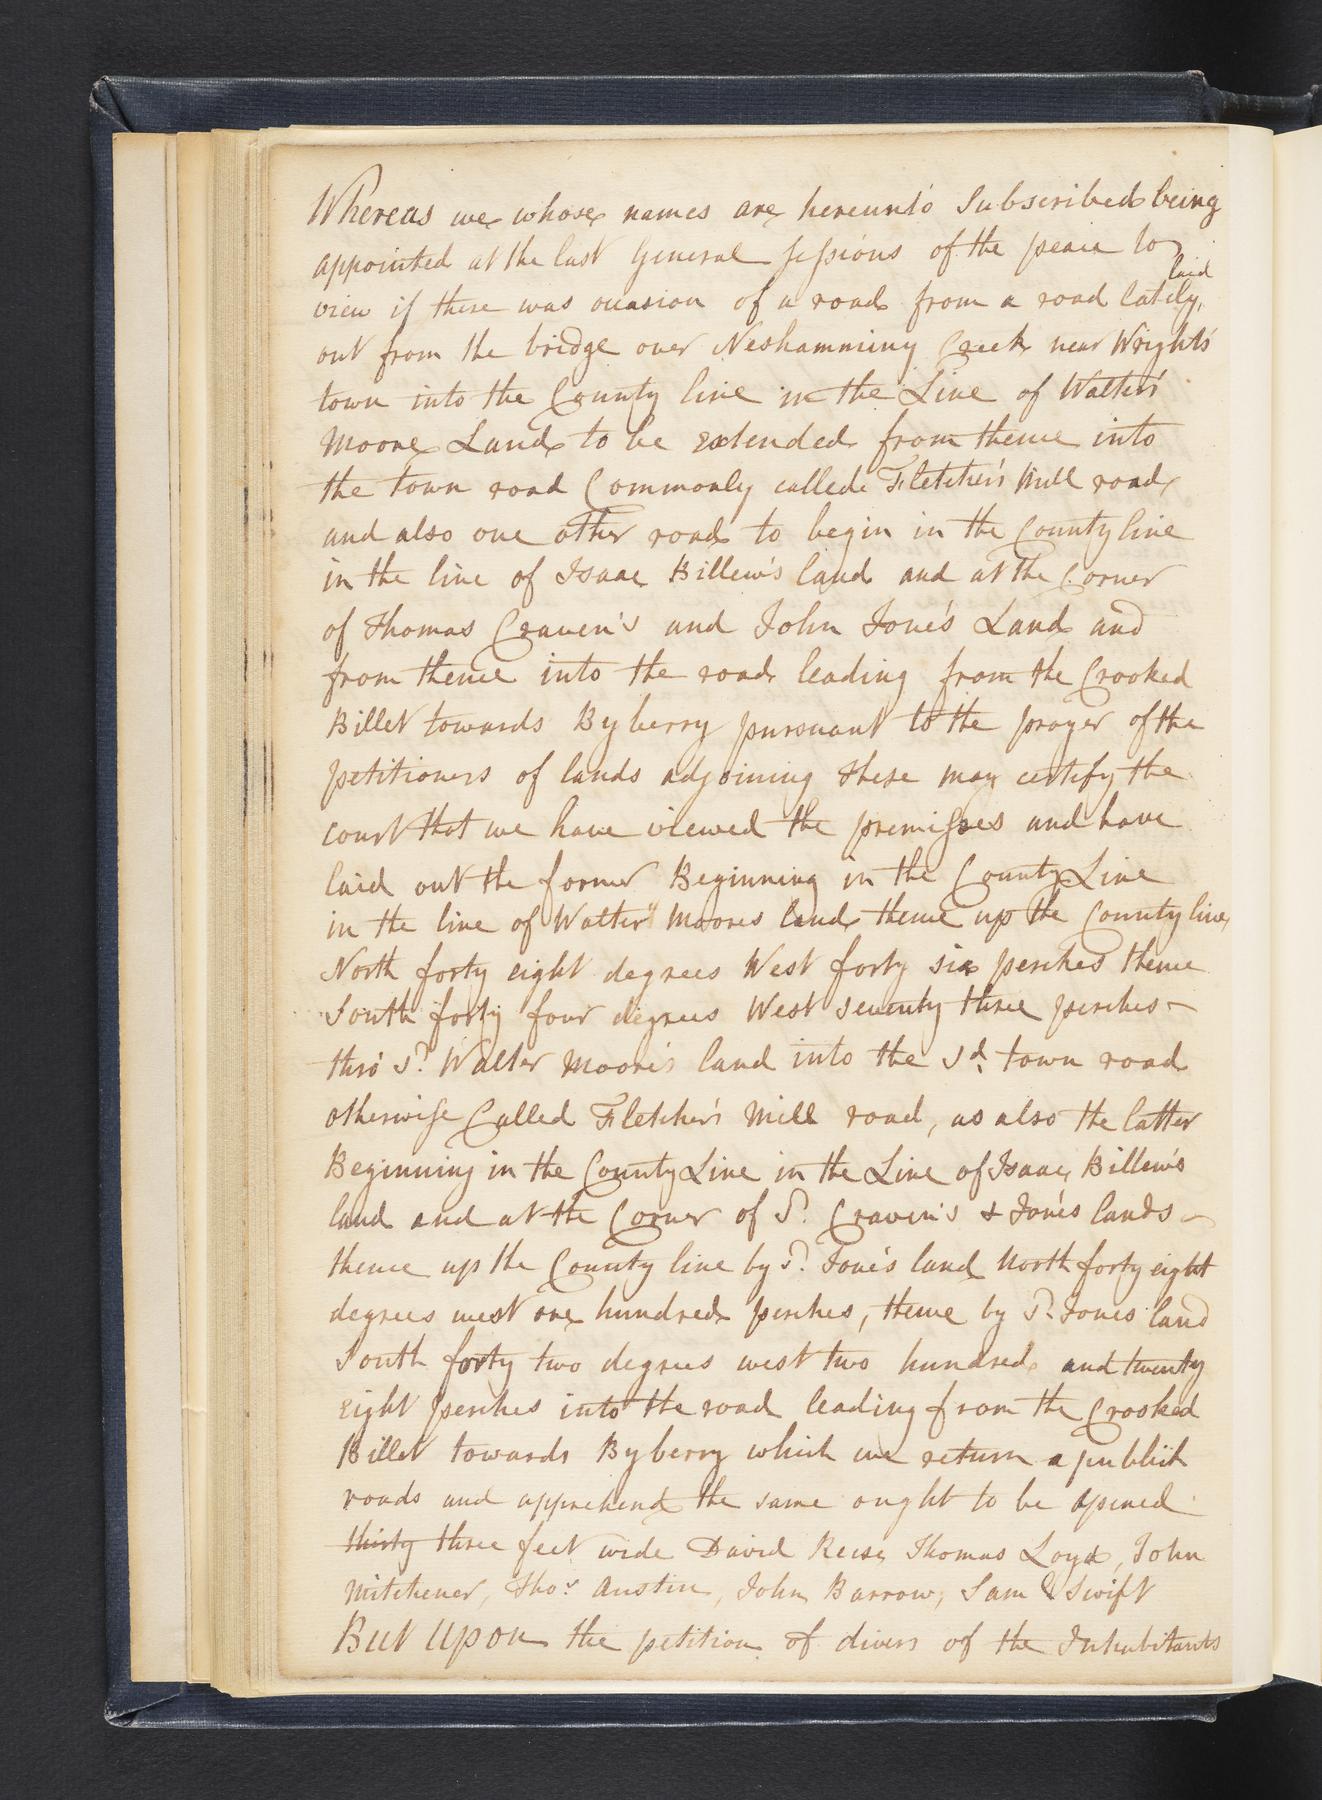 Whereas we whose names are hereunto Subscribed being
appointed at the last General Sessions of the peace to
view if there was occasion of a road from a road lately laid
out from the bridge over Neshamminy Creek near Wrights
town into the County line in the Line of Walter's
Moore Land to be extended from thence into
the town road Commonly called Fletcher's Mill road
and also one other road to begin in the County line
in the line of Isaac Billew's land and at the Corner
of Thomas Craven's and John Jone's Land and
from thence into the road leading from the Crooked
Billet towards Byberry pursuant to the prayer of the
petitioners of lands adjoining these may certify the
court that we have viewed the premisses and have
laid out the former Beginning in the County Line
in the line of Walter Moores land thence up the County line
North forty eight degrees West forty six perches thence
South forty four degrees West seventy three perches
thro' sd. Walter Moore's land into the sd. town road
otherwise Called Fletcher's Mill road, as also the latter
Beginning in the County Line in the Line of Isaac Billew's
land and at the Corner of sd. Craven's & Jone's lands
thence up the County line by sd. Jone's land North forty eight
degrees west one hundred perches, thence by sd. Jones land
South forty two degrees west two hundred and twenty
eight perches into the road leading from the Crooked
Billet towards Byberry which we return a publick
roads and apprehend the same ought to be opened
thirty three feet wide David Reese Thomas Loyd, John
Mitchener, Thos. Austin, John Barrow, Saml Swift
But Upon the petition of divers of the Inhabitants